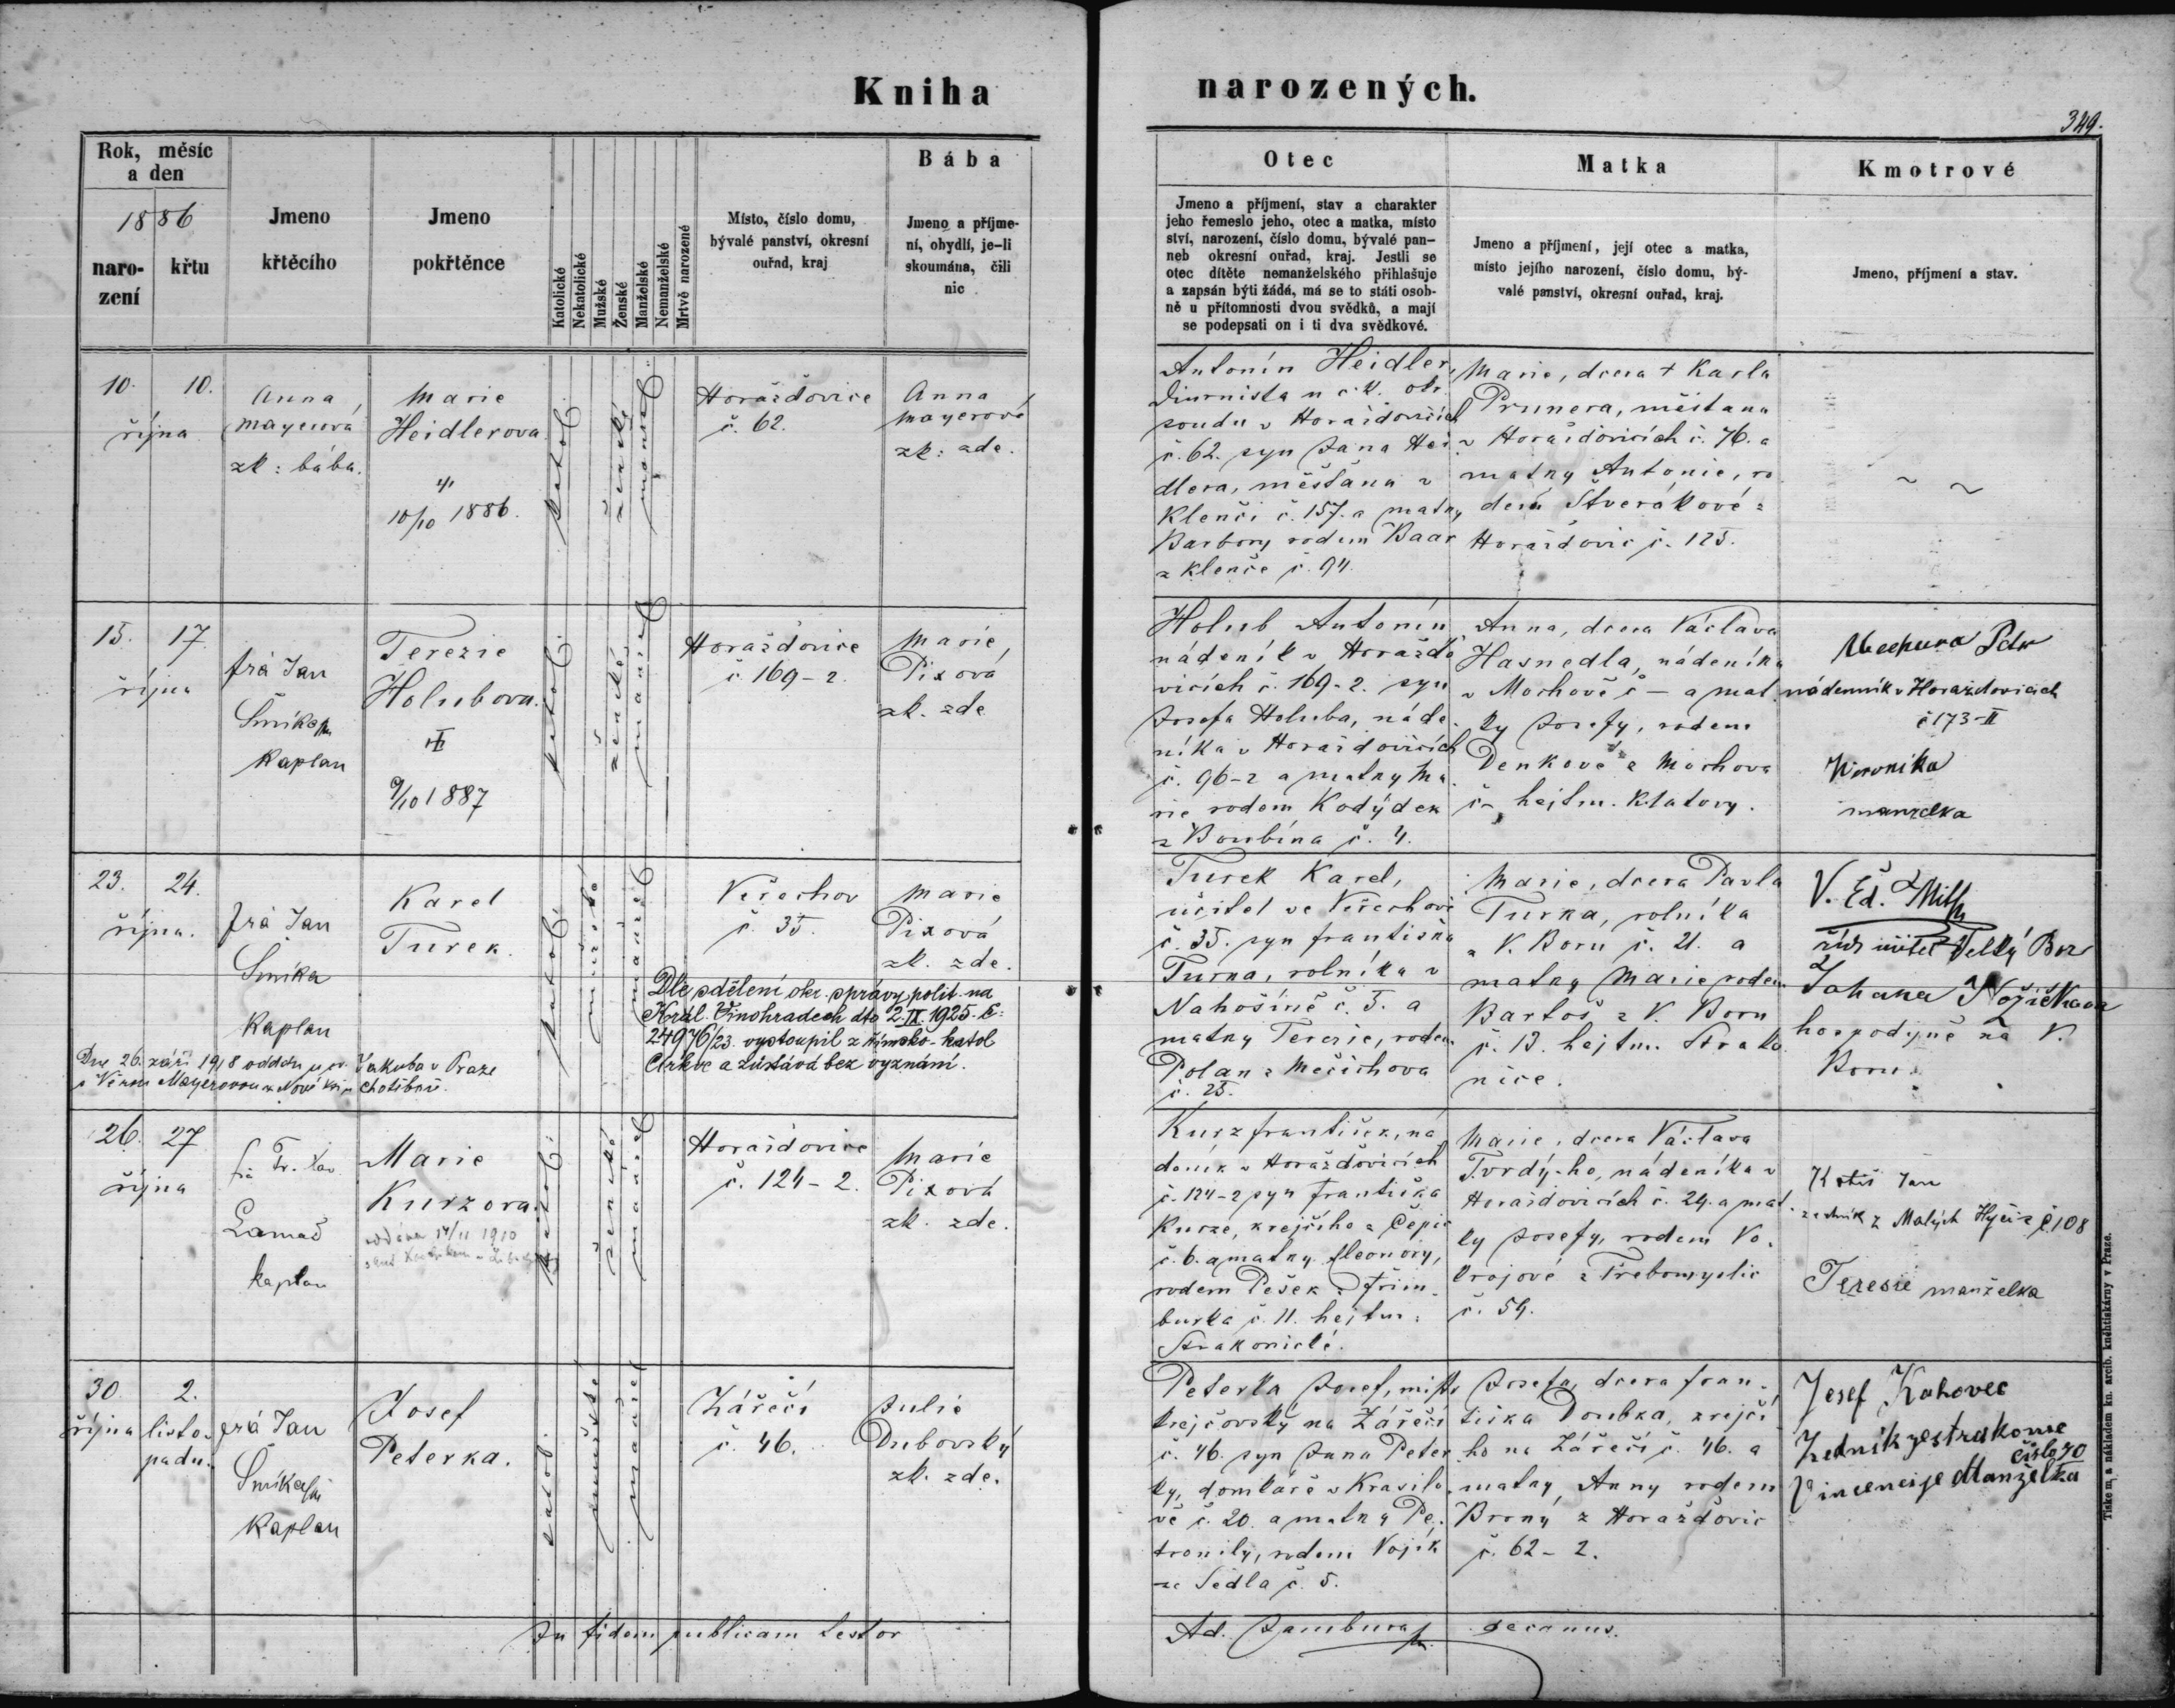 Kniha
narozených.
349.
Rok, měsíc
a den
1886
naro-
zení
křtu
Jmeno
křtěcího
Jmeno
pokřtěnce
Katolické
Nekatolické
Mužské
Ženské
Manželské
Nemanželské
Mrtvě narozené
Místo, číslo domu,
bývalé panství, okresní
ouřad, kraj
Bába
Jmeno a příjme-
ní, obydlí, je-li
skoumána, čili
nic
Otec
Jmeno a příjmení, stav a charakter
jeho řemeslo jeho, otec a matka, místo
ství, narození, číslo domu, bývalé pan-
neb okresní ouřad, kraj. Jestli se
otec dítěte nemanželského přihlašuje
a zapsán býti žádá, má se to státi osob-
ně u přítomnosti dvou svědků, a mají
se podepsati on i ti dva svědkové.
Matka
Jmeno a příjmení, její otec a matka,
místo jejího narození, číslo domu, bý-
valé panství, okresní ouřad, kraj.
Kmotrové
Jmeno, příjmení a stav.
10. 10.
října
Anna
Mayerová
zk: bába.
Marie
Heidlerova
10/10 1886.
katol.
ženské
manžel
Horažďovice
č. 62.
Anna
Mayerová
zk: zde.
Antonín Heidler,
diurnista u c. k. okr.
soudu v Horažďovicích
č. 62. syn Jana Hei-
dlera, měšťana v
Klenči č. 157. a matky
Barbory rodem Baar
z Klenče č. 94.
Marie, dcera † Karla
Prunera, měšťana
v Horažďovicích č. 76. a
matky Antonie, ro
dem Štverákové z
Horažďovic č. 123.
15. 17.
října
frá Jan
Smíka
Kaplan
Terezie
Holubova.
9/10 1887
katol.
ženské
manžel
Horažďovice
č. 169-2.
Marie
Pixová
zk. zde
Holub Antonín
nádeník v Horažďo
vicích č. 169-2. syn
Josefa Holuba, náde
níka v Horažďovicích
č. 96-2 a matky Ma
rie rodem Kodýdek
z Boubína č. 4.
Anna, dcera Václava
Hasnedla, nádeníka
v Mochově č — a mat
ky Josefy, rodem
Denkové z Mochova
č- hejtm. Klatovy.
Mechura Petr
nádenník v Horažďovicích
č 173-II
Veronika
manzelka
23. 24.
října.
frá Jan
Smíka
Kaplan
Karel
Turek.
katol.
mužské
manžel
Veřechov
č. 35.
Marie
Pixová
zk. zde.
Dle sdělení okr. správy polit. na
Král. Vinohradech dto 2. IX. 1925. č.
24976/23. vystoupil z římsko-katol
církve a zůstává bez vyznání.
Dne 26. září 1918 oddán u sv. Jakuba v Praze
s Mayerovou
Turek Karel,
učitel ve Veřechově
č. 35. syn františka
Turka, rolníka v
Nahošíně č. 5. a
matky Terezie, rodem
Polan z Mečichova
č. 25.
Marie, dcera Pavla
Turka, rolníka
z V. Boru č. 21. a
matky Marie rodem
Bartoš z V. Boru
č. 13. hejtm. Strako
nice.
V. Ed.
říd. učitel Velký Bor
Johana Nožičkova
hospodyně na V.
Boru.
26. 27
října
frá Fr. Xav
Lamač
kaplan
Marie
Kurzova.
oddána 14/11 1910
katol.
ženské
manžel
Horažďovice
č. 124-2.
Marie
Pixová
zk. zde.
Kurz františek, ná
deník v Horažďovicích
č. 124-2 syn františka
Kurze, krejčího z Čepic
č. 6. a matky Eleonory,
rodem Pešek z Frim-
burka č. 11. hejtm.
Strakonické.
Marie, dcera Václava
Tvrdý-ho, nádeníka v
Horažďovicích č. 24. a mat
ky Josefy, rodem Vo
krojové z Třebomyslic
č. 54.
Jan
zedník z Malých Hyčic č 108
Terezie manželka
30. 2.
října listo-
padu.
frá Jan
Smíka
Kaplan
Josef
Peterka.
katol.
mužské
manžel
Zářečí
č. 46.
Julie
Dubovský
zk. zde.
Peterka Josef, mistr
krejčovský na Zářečí
č. 46. syn Jana Peter
ky, domkáře v Krasilo
vě č. 20. a matky Pe-
tronily, rodem Vojík
ze Sedla č. 5.
Josefa, dcera fran-
tiška Doubka, krejčí
ho na Zářečí č. 46. a
matky Anny rodem
Brený z Horažďovic
č. 62-2.
Josef Kahovec
Zedník ze strakonic
číslo 70
Vincencije Manželka
In fidem publicam testor
Ad. Jambura decanus.
Tiskem a nákladem kn. arcib. knihtiskárny v Praze.